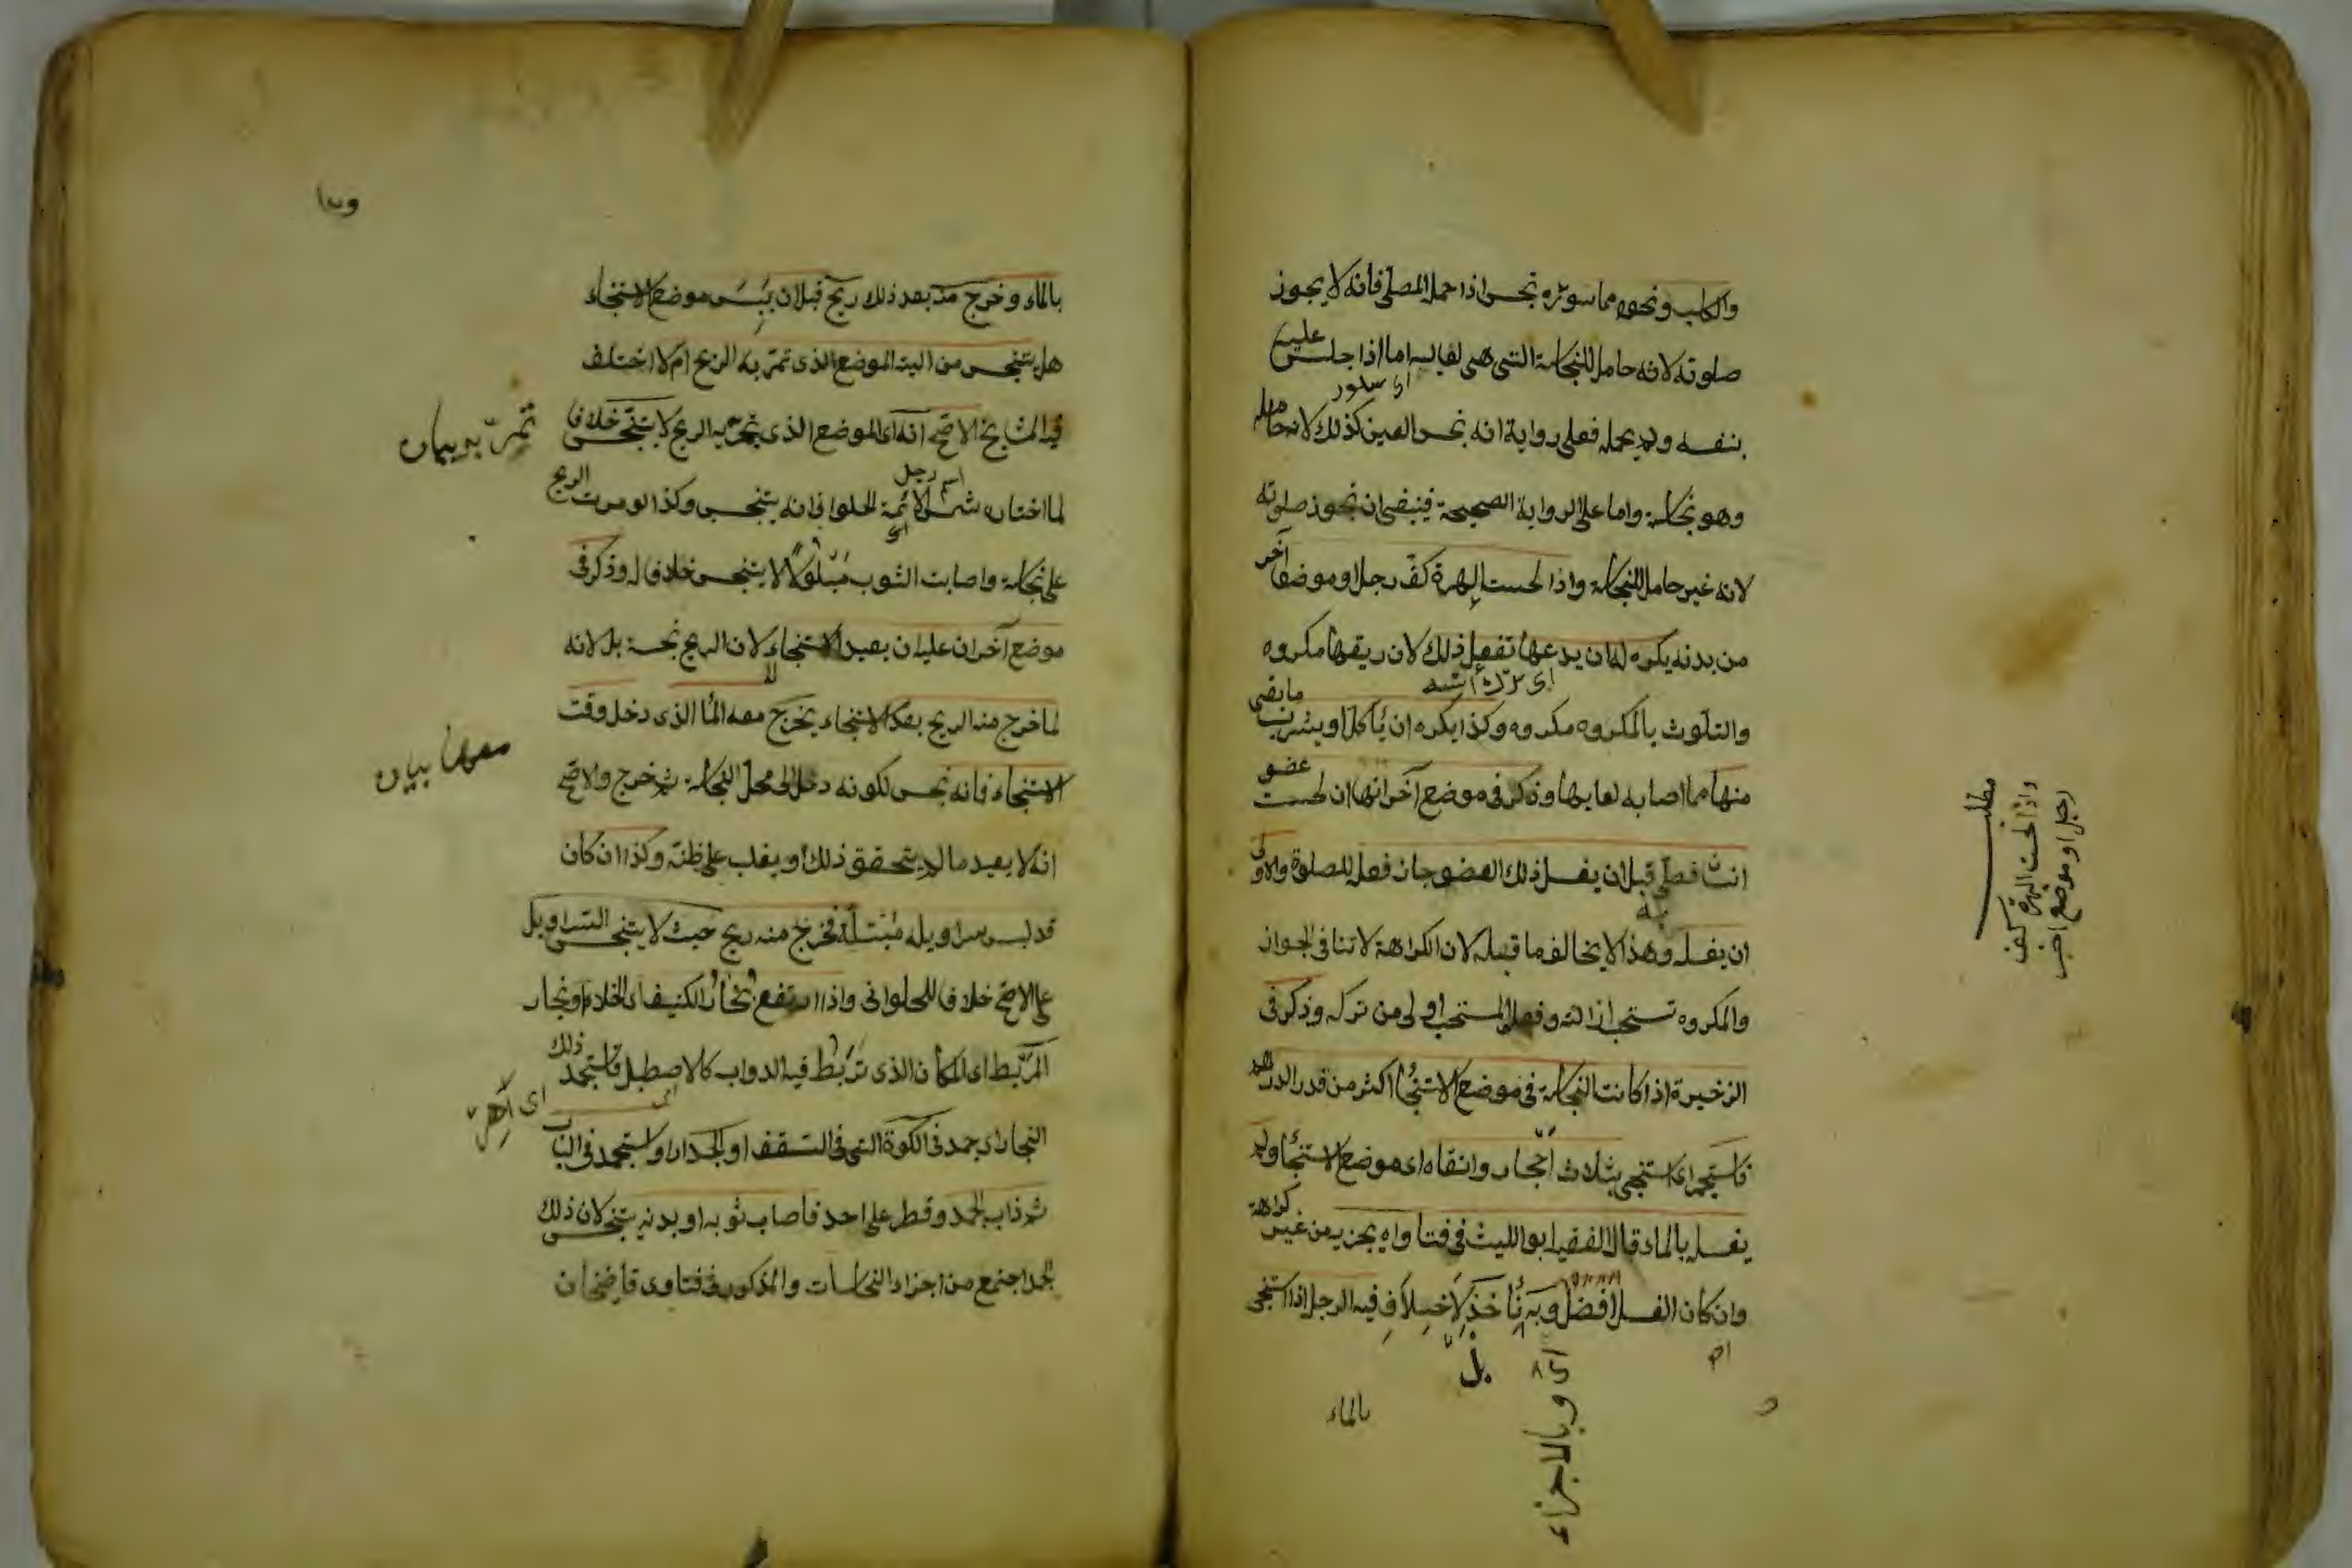 والكلب ونحوه مما سوره نجس اذا حمله المصلى فانه لا يجوز
صلوته لانه حامل للنجاسة التى هى لعابه اما اذا جلس عليه
بنفسه ولم يحمله فعلى رواية انه نجس العين كذلك لانه حامله
وهو نجاسة واما على الرواية الصحيحة فينبغى ان تجوز صلوته
لانه غير حامل للنجاسة واذا لحست الهرة كف رجل او موضعا آخر
من بدنه يكره له ان يدعها تفعل ذلك لان ريقها مكروه
والتلوث بالمكروه مكروه وكذا يكره ان يأكل او يشرب ما بقى
منها مما اصابه لعابها وذكر فى موضع آخر انها ان لحست عضو
انسان فصلى قبل ان يغسل ذلك العضو جاز فعله للصلوة والاولى
ان يغسله وهذا لا يخالف ما قبله لان الكراهة لا تنافى الجواز
والمكروه تستحب ازالته وفعل المستحب اولى من تركه وذكر فى
الزخيرة اذا كانت النجاسة فى موضع الاستنجاء اكثر من قدر الدرهم
فاستجمر اى استنجى بثلاث احجار وانقاه اى موضع الاستنجاء ولم
يغسله بالماء قال الفقيه ابو الليث فى فتاواه يجزيه من غير كراهة
وان كان الغسل افضل وبه نأخذ لا خلاف فيه الرجل اذا استنجى
اى وبالاجزاء
بل
بالماء
مطلب
واذا لحست الهرة كف
رجل او موضع اخر
بالماء وخرج منه بعد ذلك ريح قبل ان ييبس موضع الاستنجاء
هل يتنجس من اليته الموضع الذى تمر به الريح ام لا اختلف
فيه المشايخ الاصح انه اى الموضع الذى تمر به الريح لا يتنجس خلافا
لما اختاره شمس الائمة الحلوانى فانه يتنجس وكذا لو مرت الريح
على نجاسة واصابت الثوب مبلولا لا يتنجس خلافا له وذكر فى
موضع آخر ان عليه ان يعيد الاستنجاء لا لان الريح نجسة بل لانه
لما خرج منه الريح بعد الاستنجاء يخرج معه الماء الذى دخل وقت
الاستنجاء فانه نجس لكونه دخل الى محل النجاسة ثم خرج والاصح
انه لا يعيد ما لم يتحقق ذلك او يغلب على ظنه وكذا ان كان
قد لبس سراويله مبتلة فخرج منه ريح حيث لا يتنجس السراويل
على الاصح خلافا للحلوانى واذا ارتفع بخار الكنيف اى الخلاء او بخار
المربط اى المكان الذى تربط فيه الدواب كالاصطبل فاستجمد ذلك
البخار اى جمد فى الكوة التى فى السقف او الجدار او استجمد فى الباب
ثم ذاب الجمد وقطر على احد فاصاب ثوبه او بدنه يتنجس لان ذلك
الجمد اجتمع من اجزاء النجاسات والمذكور فى فتاوى قاضيخان
تمر به بيان
معها بيان